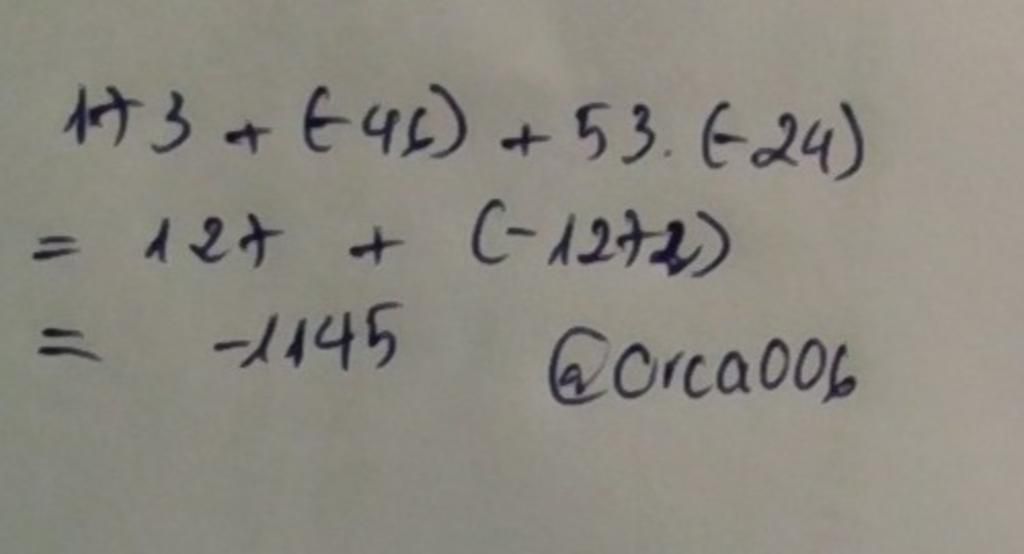 173 + (-46) + 53. (-24)
= 127 + (-1272)
= -1145 @orca006